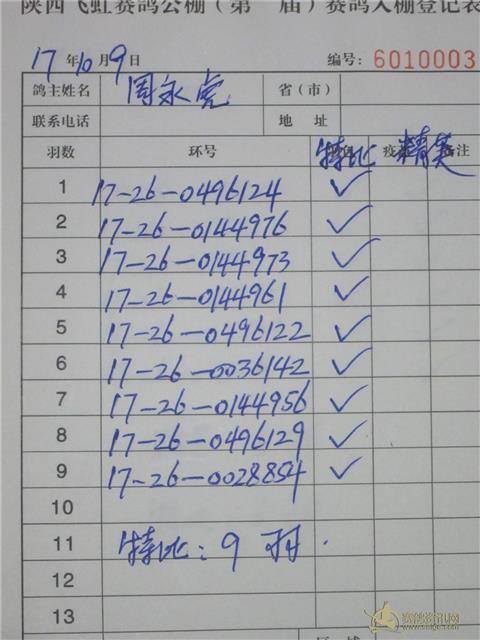 陕西飞虹赛鸽公棚(第 届)赛鸽入棚登记表
17年10月9日 编号:6010003
鸽主姓名 周永虎 省(市)
联系电话 地址
羽数 环号 特比 精英 注
1 17-26-0496124 ✓
2 17-26-0144976 ✓
3 17-26-0144973 ✓
4 17-26-0144961 ✓
5 17-26-0496122 ✓
6 17-26-0036142 ✓
7 17-26-0144956 ✓
8 17-26-0496129 ✓
9 17-26-0028854 ✓
10
11 特比:9羽.
12
13